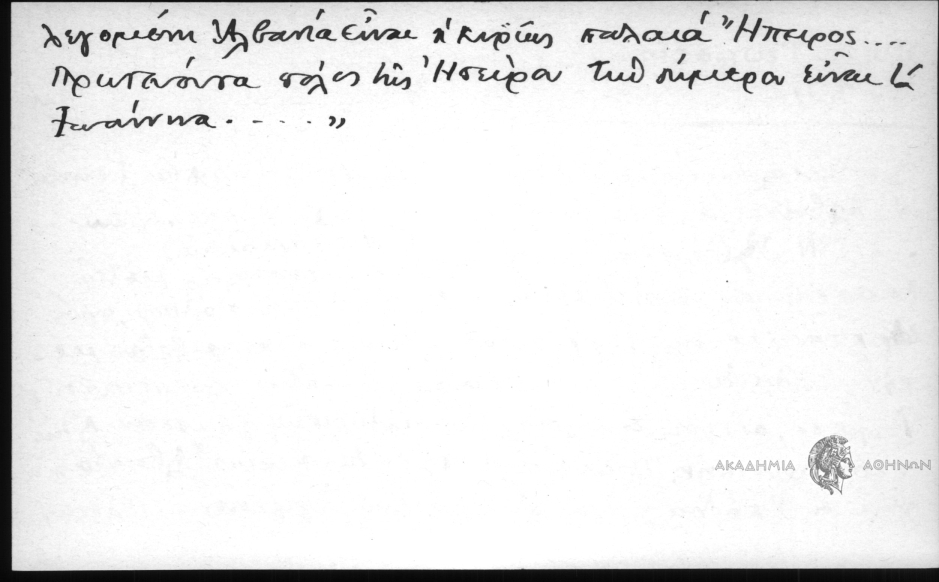 λεγομένη Ἀλβανία εἶναι ἡ κυρίως παλαιά Ἤπειρος....
Πρωτεύουσα πόλις τῆς Ἠπείρου τήν σήμερον εἶναι τά
Ἰωάννινα.....»
ΑΚΑΔΗΜΙΑ ΑΘΗΝΩΝ